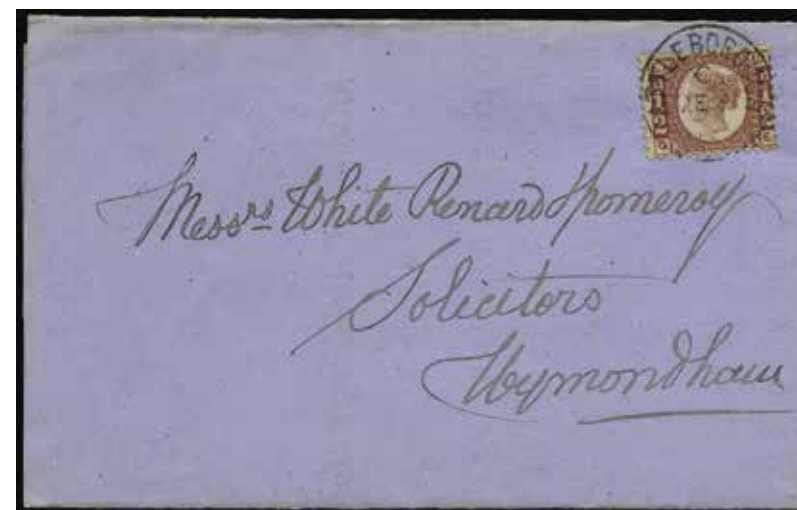 Messrs White Renard & Pomeroy
Solicitors
Wymondham